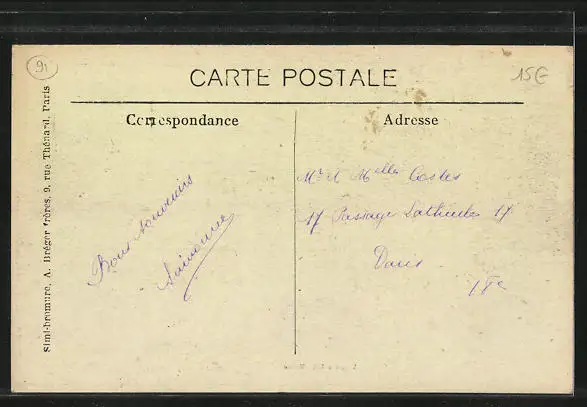 91
15€
CARTE POSTALE
Correspondance
Adresse
Simi-bromure, A. Bréger frères, 9, rue Thénard, Paris
Bons souvenirs
Simonne
Mr & Melles Costes
17 Passage 17
Paris